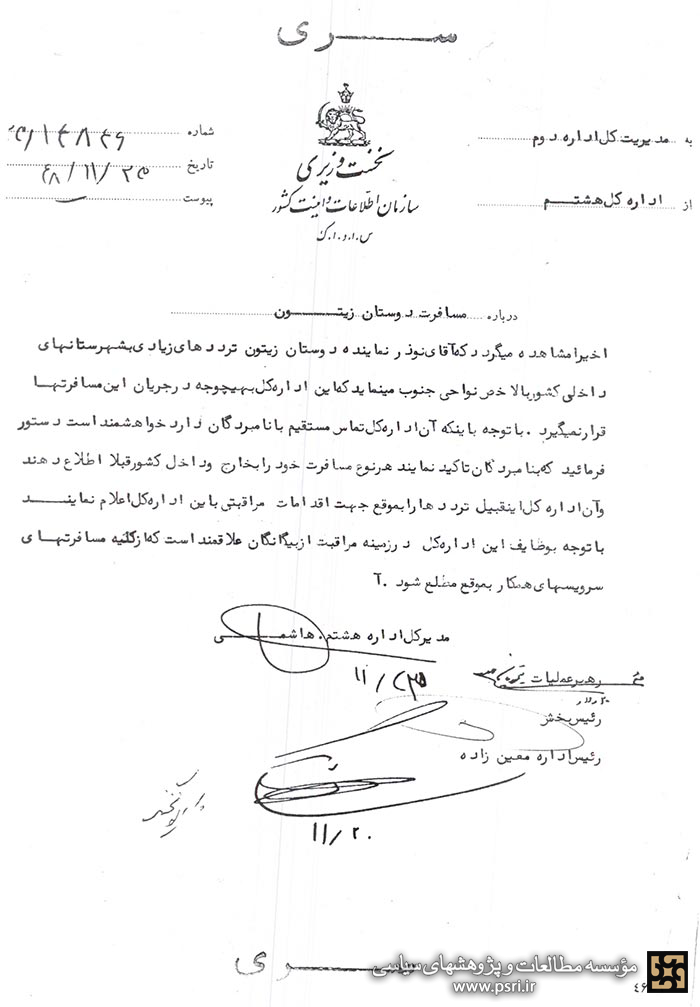 ســــری
به مدیریت کل اداره دوم
از اداره کل هشتــم
نخست وزیری
سازمان اطلاعات و امنیت کشور
س.ا.و.ا.ک
شماره
تاریخ ۴۸/۱۱/۲۵
پیوست
درباره مسافرت دوستان زیتــون
اخیرا مشاهده میگردد که آقای نوذر نماینده دوستان زیتون ترددهای زیادی بشهرستانهای
داخلی کشور بالاخص نواحی جنوب مینماید که این اداره کل بهیچوجه درجریان این مسافرتهـا
قرار نمیگیرد . با توجه باینکه آن اداره کل تماس مستقیم با نامبردگان دارد خواهشمند است دستور
فرمائید که بنامبردگان تاکید نمایند هرنوع مسافرت خود را بخارج وداخل کشور قبلا اطلاع دهند
وآن اداره کل اینقبیل ترددها را بموقع جهت اقدامات مراقبتی باین اداره کل اعلام نماینـــد
با توجه بوظایف این اداره کل درزمینه مراقبت از بیگانگان علاقمند است که از کلیه مسافرتهای
سرویسهای همکار بموقع مطلع شود . آ
مدیرکل اداره هشتم . هاشمــی
رهبر عملیات
رئیس بخش
رئیس اداره معین زاده
۱۱/۲۰
ســــری
مؤسسه مطالعات و پژوهشهای سیاسی
www.psri.ir
۴۶